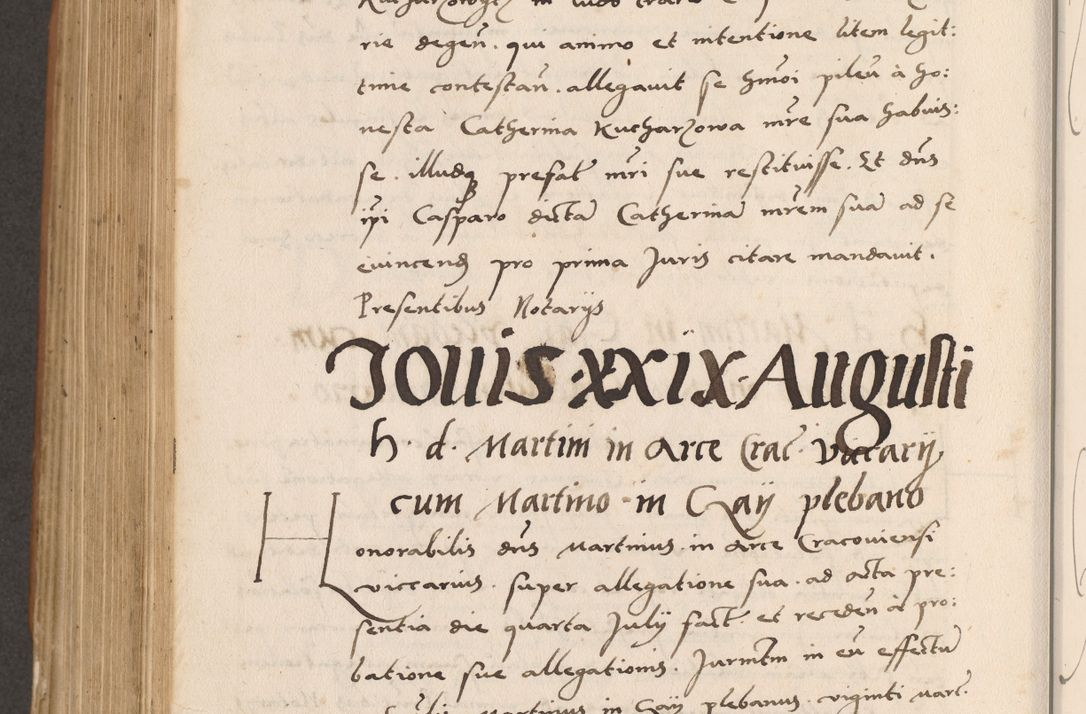 rie degen̄ . qui animo et intentione litem legit:
time contestan̄ . allegauit se hm̄oi pileū à ho:
nesta Catherina Kucharzowa mr̄e sua habuis:
se . illudq prefat̄ mr̄i sue restituisse . Et dn̄s
ip̄i Casparo dictā Catherinā mr̄em suā ad se
euincend̄ pro prima Juris citare mandauit .
Presentibus Notarijs
JOUIS · XXIX · Augusti
h · d · Martini in Arce Crac̄ · viccarij
cum Martino · in Gay plebano
Honorabilis dn̄s Martinus . in Arce Cracouiensi
viccarius . super allegatione sua . ad acta pre:
sentia die quarta Julij fact̄ . et receden̄ à pro:
batione sue allegationis . Jurmtm̄ in eū effectū
Martinus in Gay plebanus . viginti marc̄ .